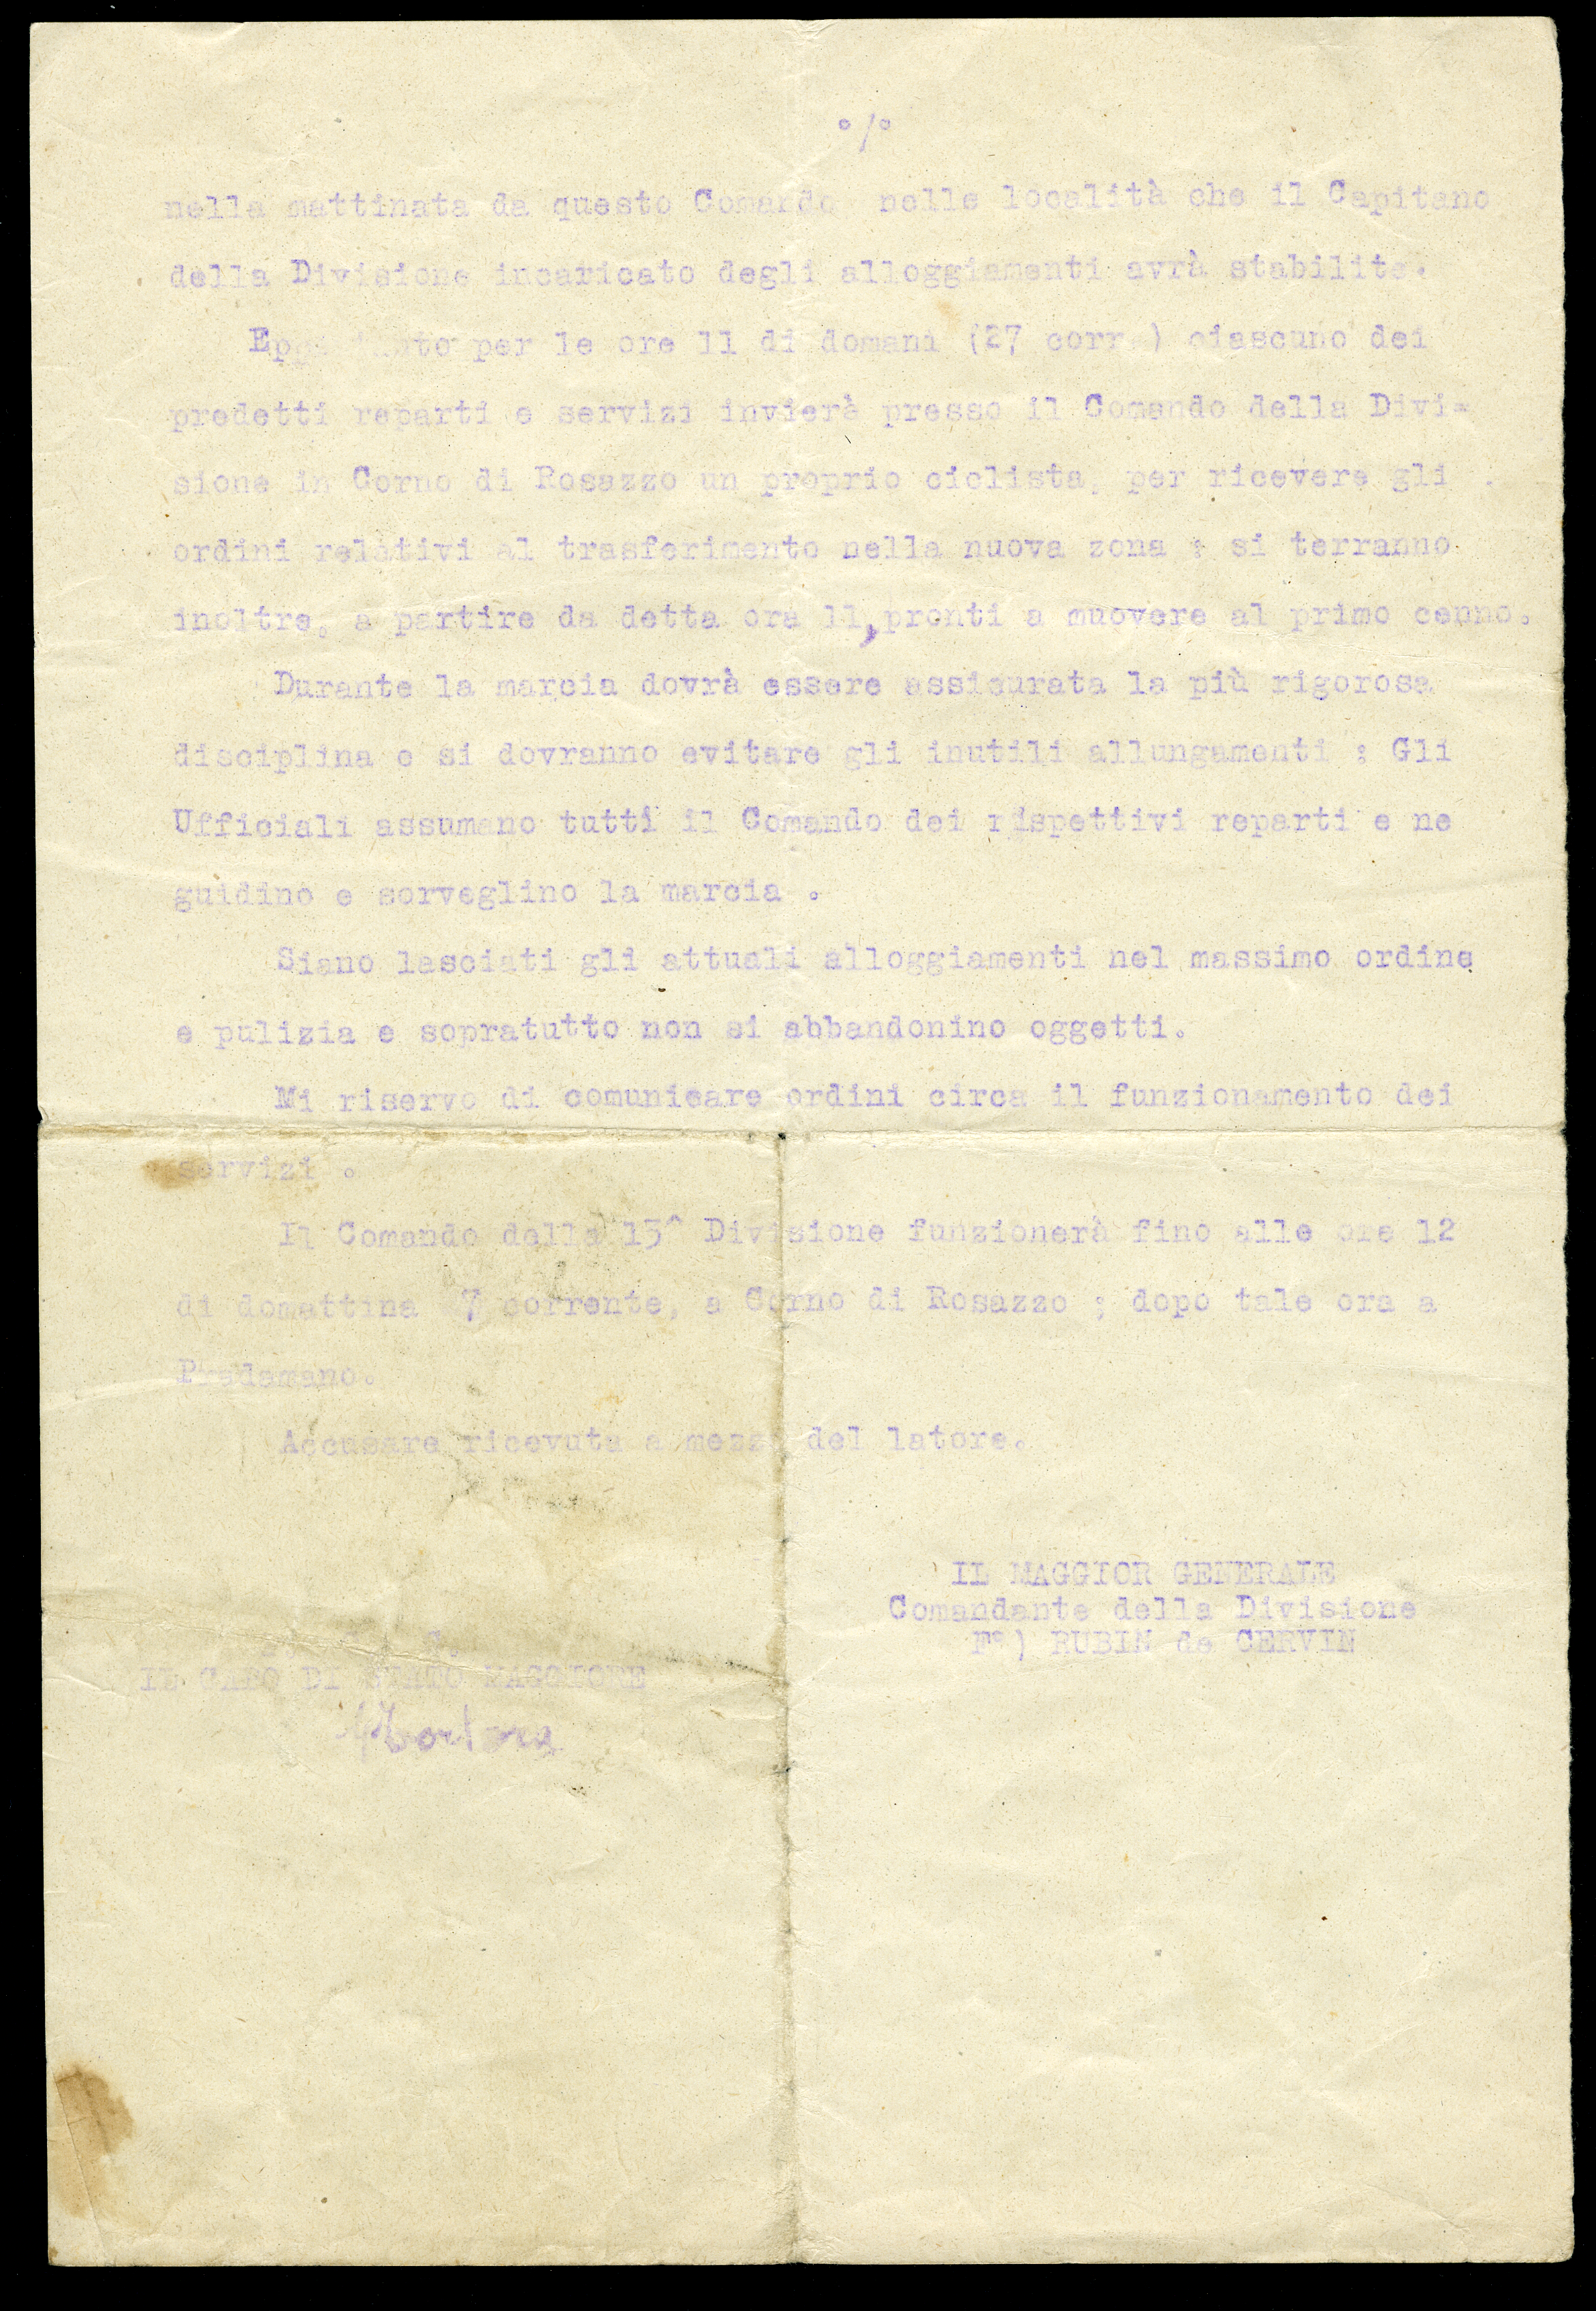 °/°
nella mattinata da questo Comando nelle località che il Capitano
della Divisione incaricato degli alloggiamenti avrà stabilite.
per le ore 11 di domani (27 corr.) ciascuno dei
predetti reparti e servizi invierà presso il Comando della Divi=
sione in Corno di Rosazzo un proprio ciclista, per ricevere gli
ordini relativi al trasferimento nella nuova zona ; si terranno
inoltre, a partire da detta ora 11, pronti a muovere al primo cenno.
Durante la marcia dovrà essere assicurata la più rigorosa
disciplina e si dovranno evitare gli inutili allungamenti : Gli
Ufficiali assumano tutti il Comando dei rispettivi reparti e ne
guidino e sorveglino la marcia .
Siano lasciati gli attuali alloggiamenti nel massimo ordine
e pulizia e sopratutto non si abbandonino oggetti.
Mi riservo di comunicare ordini circa il funzionamento dei
servizi .
Il Comando della 13^ Divisione funzionerà fino alle ore 12
di domattina 7 corrente, a Corno di Rosazzo ; dopo tale ora a
Pradamano.
Accusare ricevuta a mezzo del latore.
IL MAGGIOR GENERALE
Comandante della Divisione
Fº) RUBIN de CERVIN
IL CAPO DI STATO MAGGIORE